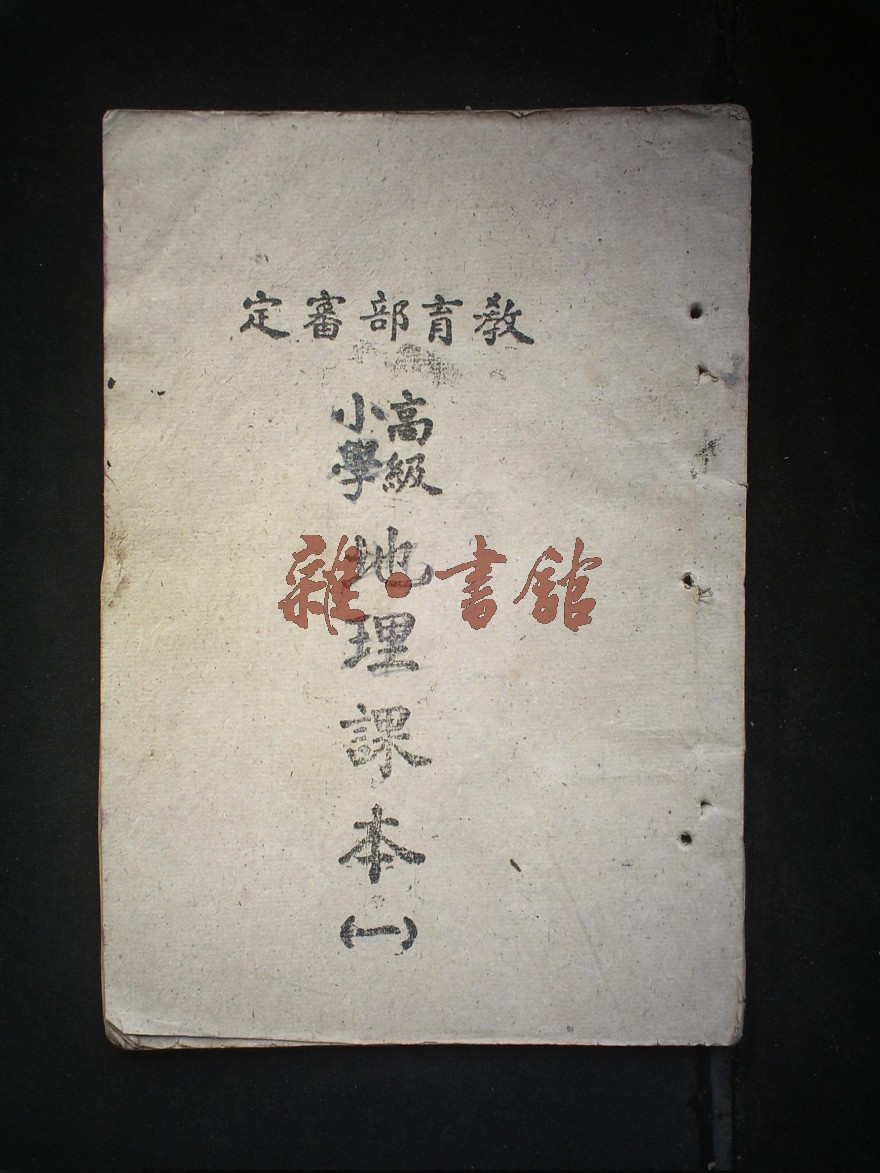 教育部審定
高級
小學
地理課本(一)
雜·書館